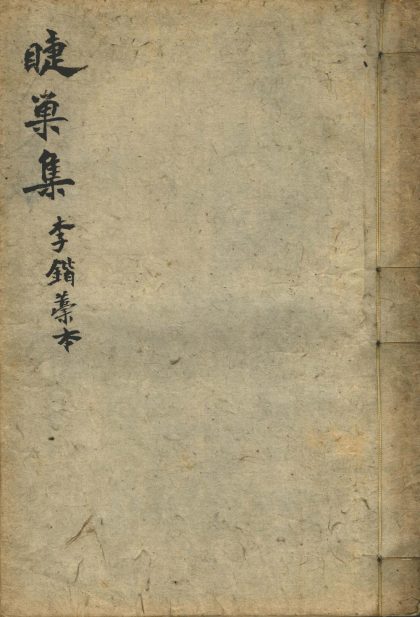 睫巢集
李鍇藁本